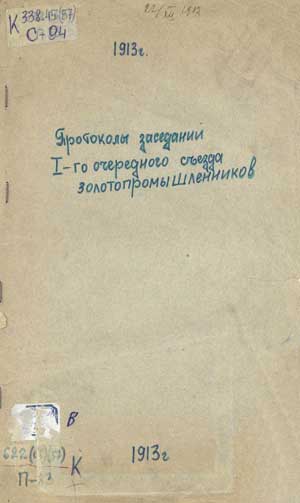 К 338.45(57)
С704
22/XII 1913
1913г.
Протоколы заседаний
I-го очередного съезда
золотопромышленников
В
К
1913г